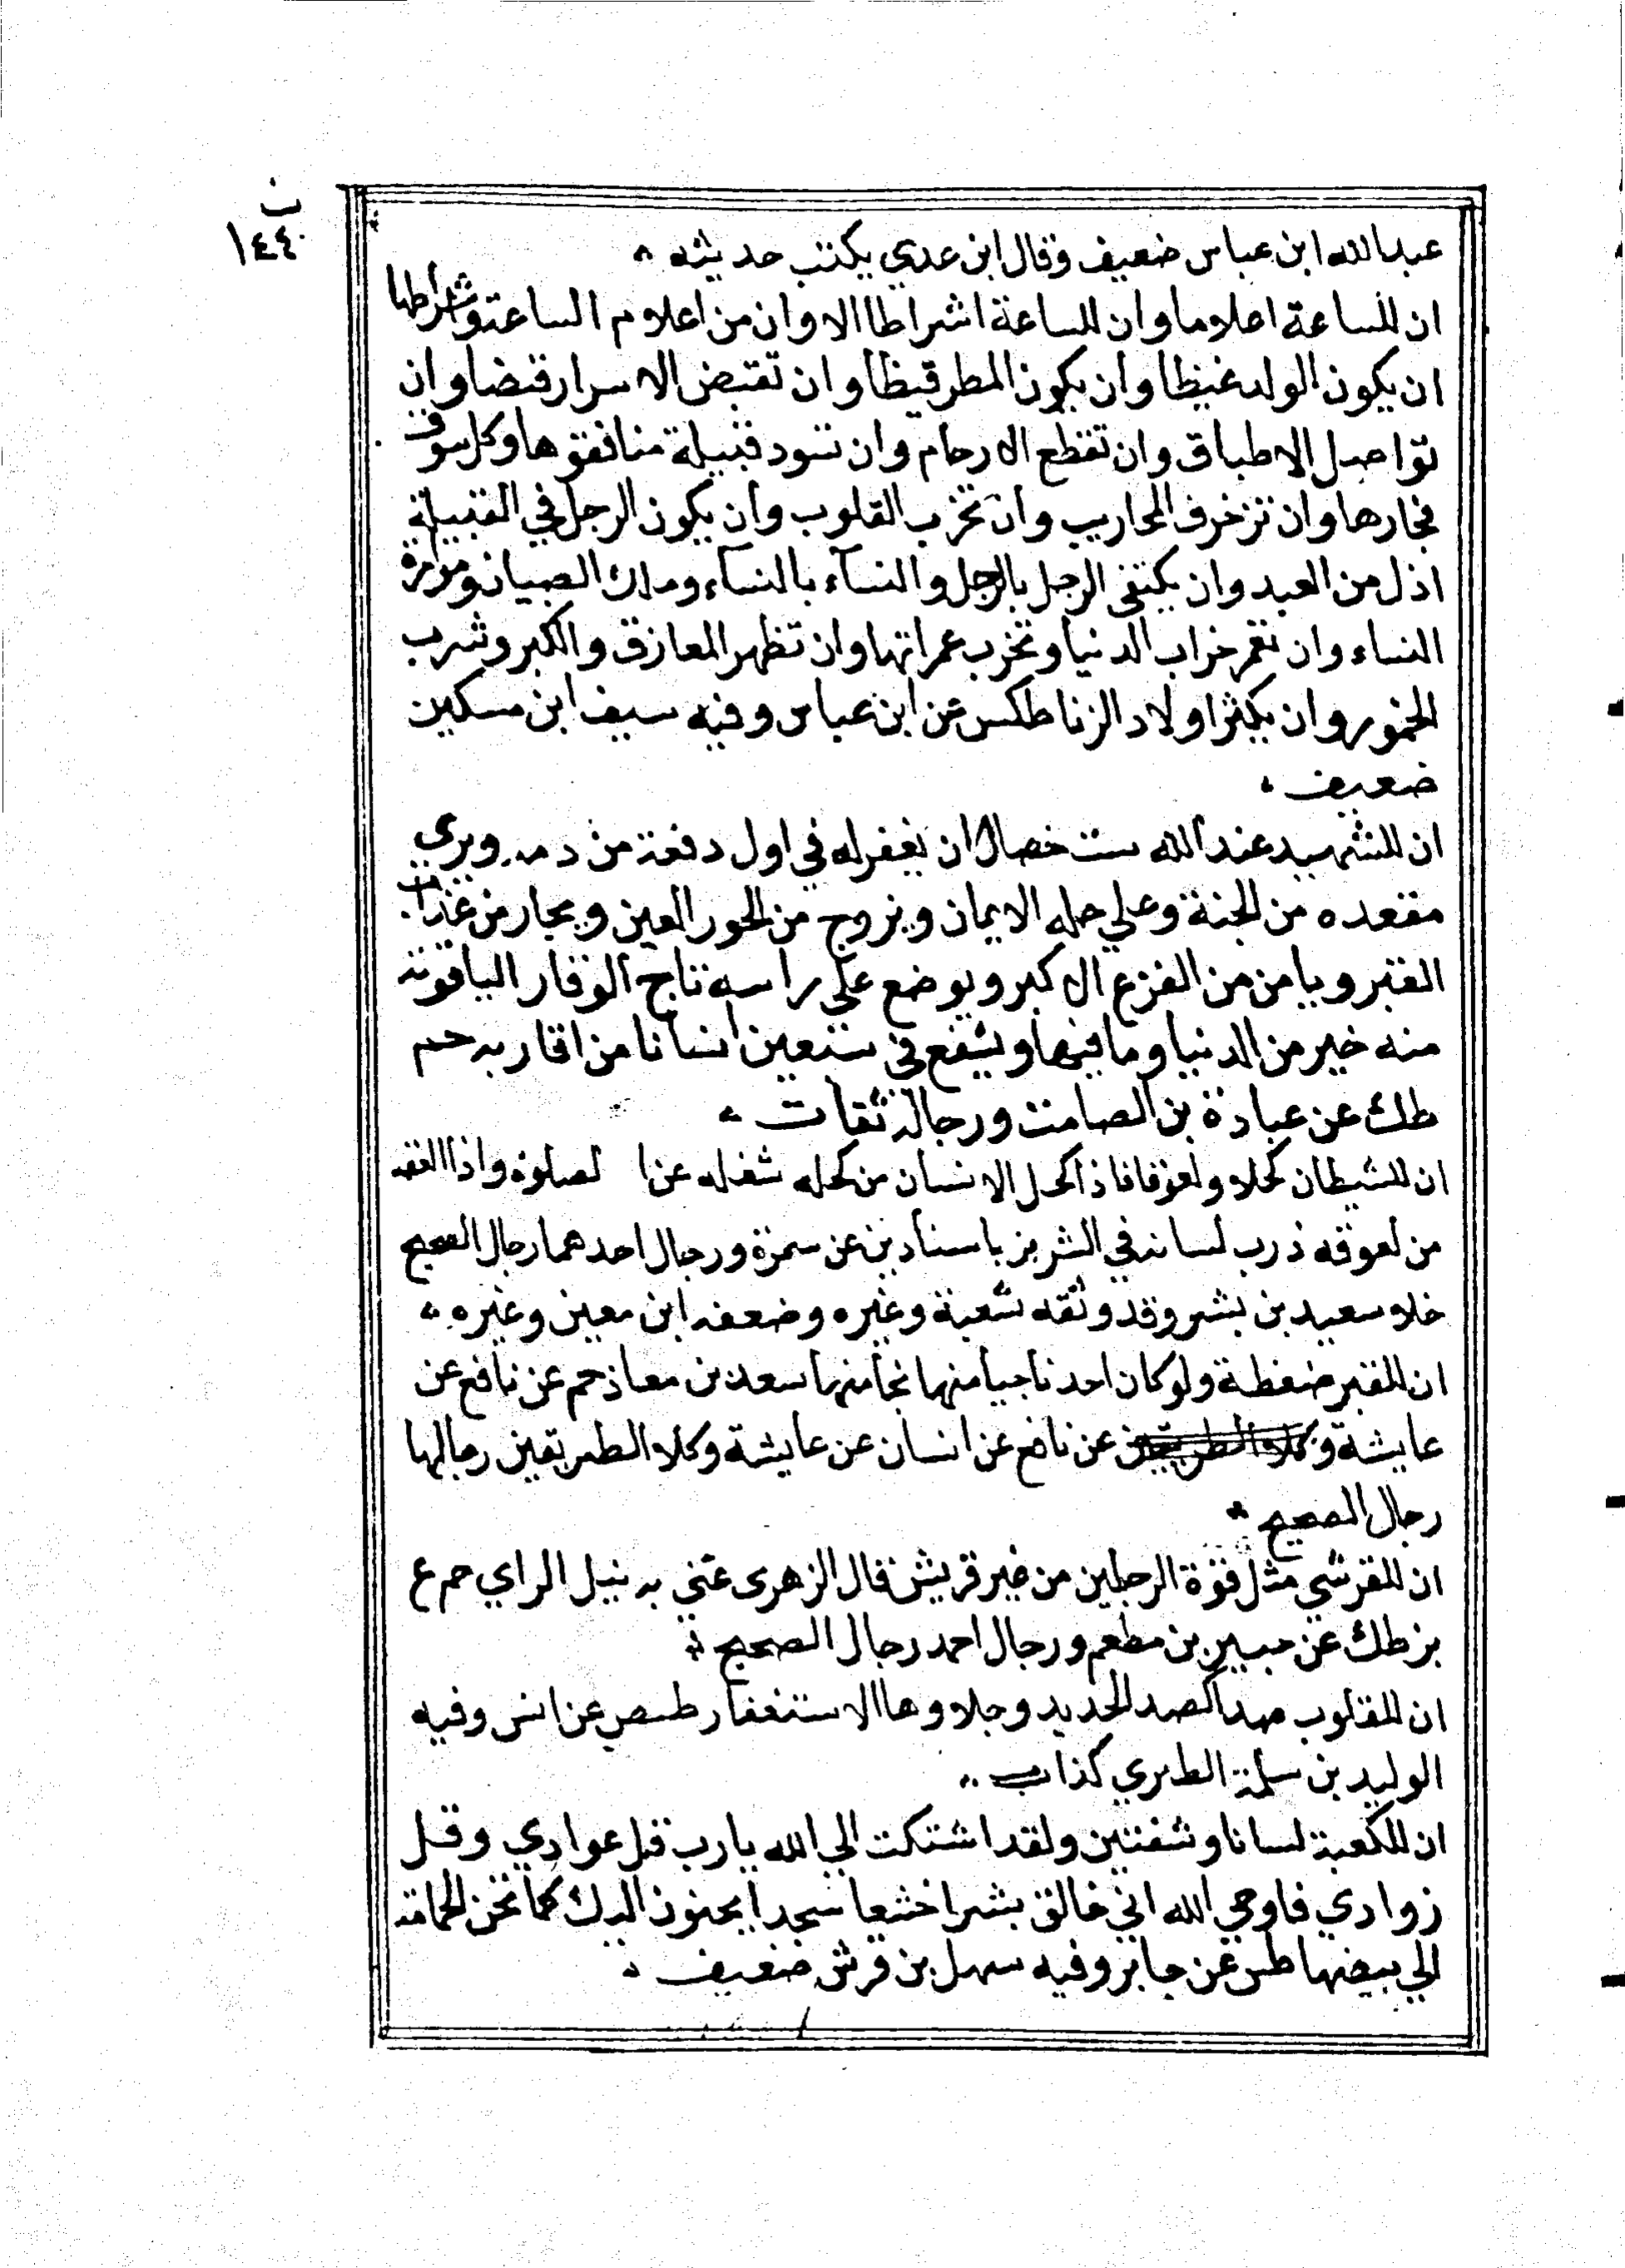 ن
١٤٤
عبدالله ابن عباس ضعيف وقال ابن عدي يكتب حديثه
ان للساعة اعلاما وان للساعة اشراطا الا وان من اعلام الساعة وشراطها
ان يكون الولد غيظا وان يكون المطر قيظا وان تقبض الاسرار قبضا وان
تواصل الاطباق وان تقطع الارحام وان تسود قبيلة منافقوها وكل سوق
فجارها وان تزخرف المحاريب وان تخرب القلوب وان يكون الرجل في القبيلة
اذل من العبد وان يكتفى الرجل بالرجل والنسآء بالنسآء وملك الصبيان ومؤامرة
النساء وان تعمر خراب الدنيا وتخرب عمراتها وان تظهر المعازف والكبر وشرب
الخمور وان يكثر اولاد الزنا طكس عن ابن عباس وفيه سيف ابن مسكين
ضعيف
ان للشهيد عند الله ست خصال ان يغفر له في اول دفعة من دمه ويري
مقعده من الجنة وعلي حله الايمان ويزوج من الحور العين ويجار من عذاب
القبر ويامن من الفزع الاكبر ويوضع علي راسه تاج الوقار الياقوتة
منه خير من الدنيا وما فيها ويشفع في سبعين انسانا من اقاربه حم
طك عن عبادة بن الصامت ورجاله ثقات
ان للشيطان كحلا ولعوقا فاذا كحل الانسان من كحله شغله عن الصلوة واذا العقه
من لعوقه ذرب لسانه في الشر بز باسنادين عن سمرة ورجال احدهما رجال الصحيح
خلا سعيد بن بشر وقد وثقه شعبة وغيره وضعفه ابن معين وغيره
ان للقبر ضغطة ولو كان احد ناجيا منها نجا منها سعد بن معاذ حم عن نافع عن
عايشة و عن نافع عن انسان عن عايشة وكلا الطريقين رجالها
رجال الصحيح
ان للقرشي مثل قوة الرجلين من غير قريش قال الزهرى عني به نبل الراي حم ع
بز طك عن جبير بن مطعم ورجال احمد رجال الصحيح
ان للقلوب صدا كصد الحديد وجلاوها الاستغفار طسص عن انس وفيه
الوليد بن سلمة الطبري كذاب
ان للكعبة لسانا وشفتين ولقد اشتكت الي الله يا رب قل عوادي وقل
زوادي فاوحي الله اني خالق بشرا خشعا سجدا يحنون اليك كما تحن الحمامة
الي بيضها طس عن جابر وفيه سهل بن قرش ضعيف